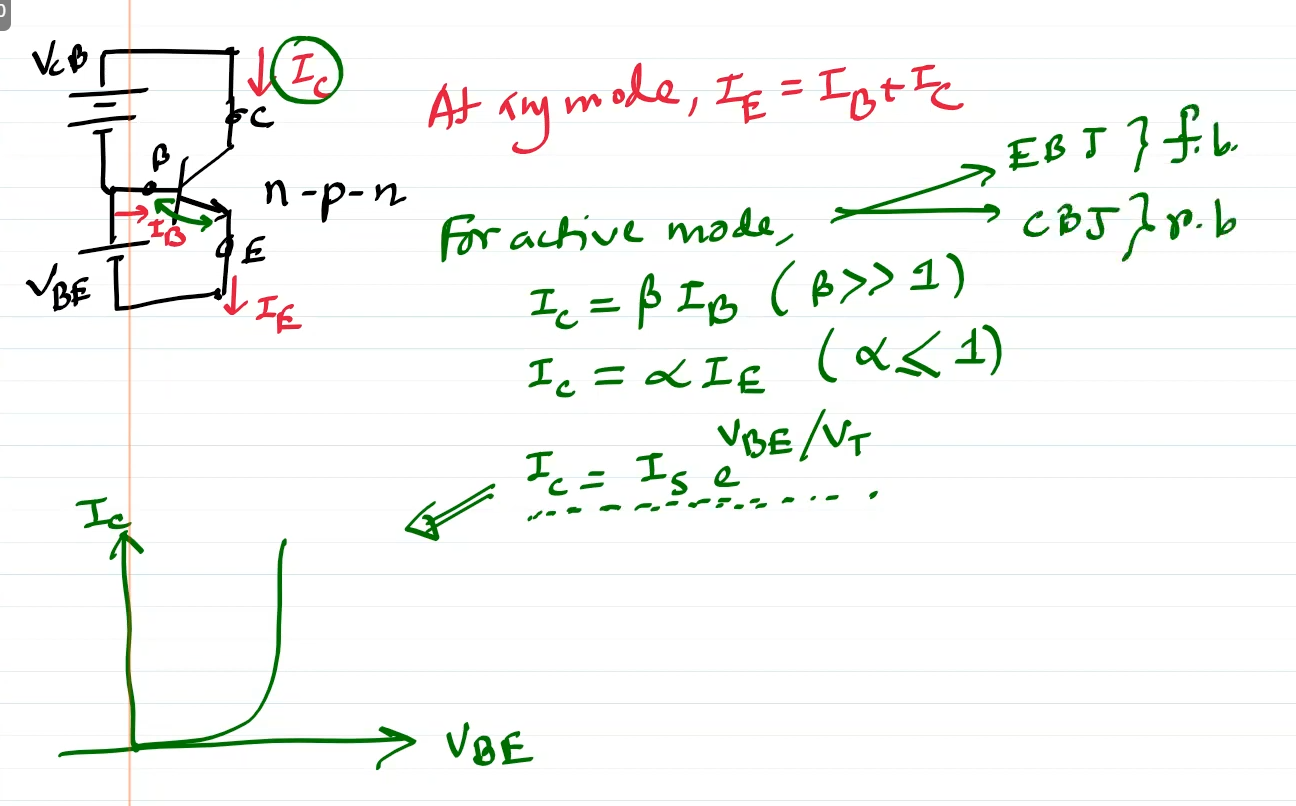 V_CB
I_C
C
B
n-p-n
I_B
E
V_BE
I_E
At any mode, I_E = I_B + I_C
For active mode,
EBJ } f.b.
CBJ } r.b
I_C = β I_B (β >> 1)
I_C = α I_E (α ≤ 1)
I_C = I_S e^(V_BE/V_T)
I_C
V_BE